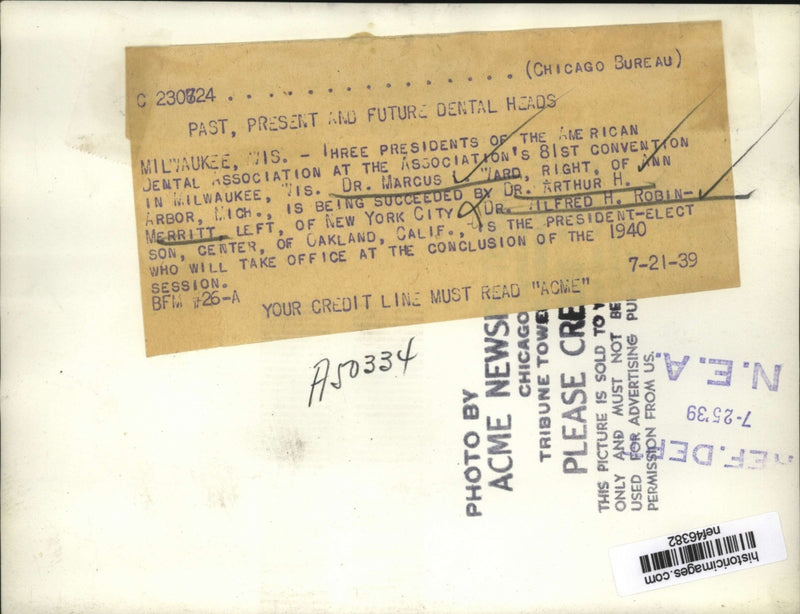 C 230824 . . . . . . . . . . . . . . . (CHICAGO BUREAU)
PAST, PRESENT AND FUTURE DENTAL HEADS
MILWAUKEE, WIS. - THREE PRESIDENTS OF THE AMERICAN
DENTAL ASSOCIATION AT THE ASSOCIATION'S 81ST CONVENTION
IN MILWAUKEE, WIS. DR. MARCUS WARD, RIGHT, OF ANN
ARBOR, MICH., IS BEING SUCCEEDED BY DR. ARTHUR H.
MERRITT, LEFT, OF NEW YORK CITY. DR. WILFRED H. ROBIN-
SON, CENTER, OF OAKLAND, CALIF., IS THE PRESIDENT-ELECT
WHO WILL TAKE OFFICE AT THE CONCLUSION OF THE 1940
SESSION.
BFM #26-A
7-21-39
YOUR CREDIT LINE MUST READ "ACME"
A50334
PHOTO BY
ACME
CHICAGO
TRIBUNE
PLEASE
THIS PICTURE IS SOLD TO
ONLY AND MUST NOT BE
USED FOR ADVERTISING
PERMISSION FROM US.
N.E.A.
7-25'39
historicimages.com
nef46382